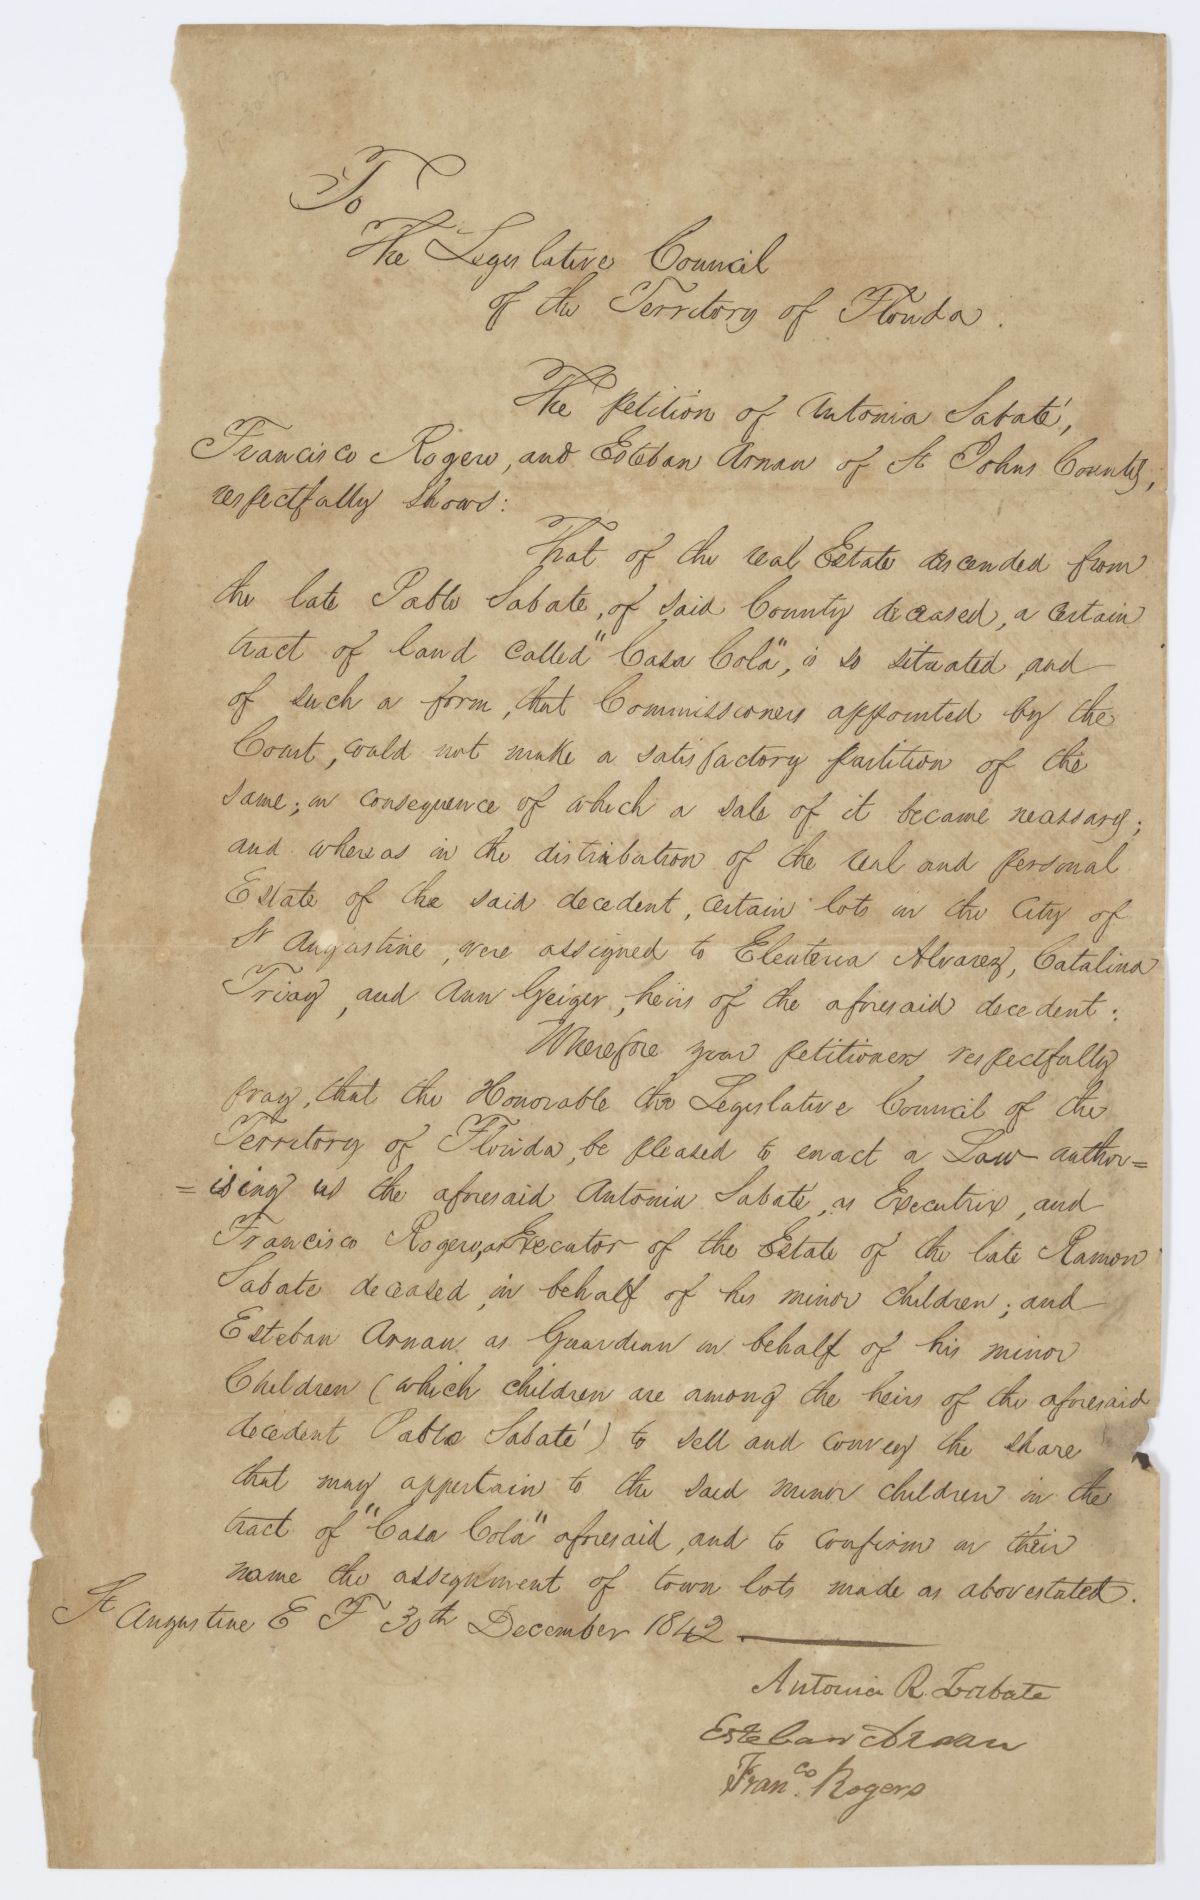 To
The Legislative Council
of the Territory of Florida.
The petition of Antonia Sabaté,
Francisco Rogero, and Esteban Arnau of St Johns County,
respectfully shows:
That of the real Estate descended from
the late Pablo Sabate, of said County deceased, a certain
tract of land called "Casa Cola", is so situated, and
of such a form, that Commissioners appointed by the
Court, could not make a satisfactory partition of the
same; in consequence of which a sale of it became necessary;
and whereas in the distribution of the real and personal
Estate of the said decedent, certain lots in the City of
St Augustine, were assigned to Eleuteria Alvarez, Catalina
Triay, and Ann Geiger, heirs of the aforesaid decedent:
Wherefore your petitioners respectfully
pray, that the Honorable the Legislative Council of the
Territory of Florida, be pleased to enact a Law author=
=ising us the aforesaid Antonia Sabaté, as Executrix, and
Francisco Rogero, as Executor of the Estate of the late Ramon
Sabate deceased, in behalf of his minor children; and
Esteban Arnau as Guardian in behalf of his minor
Children (which children are among the heirs of the aforesaid
decedent Pablo Sabaté) to sell and convey the share
that may appertain to the said minor children in the
tract of "Casa Cola" aforesaid, and to confirm in their
name the assignment of town lots made as abovestated.
St Augustine E F 30th December 1842
Antonia R. Sabate
Esteban Arnau
Franco. Rogero